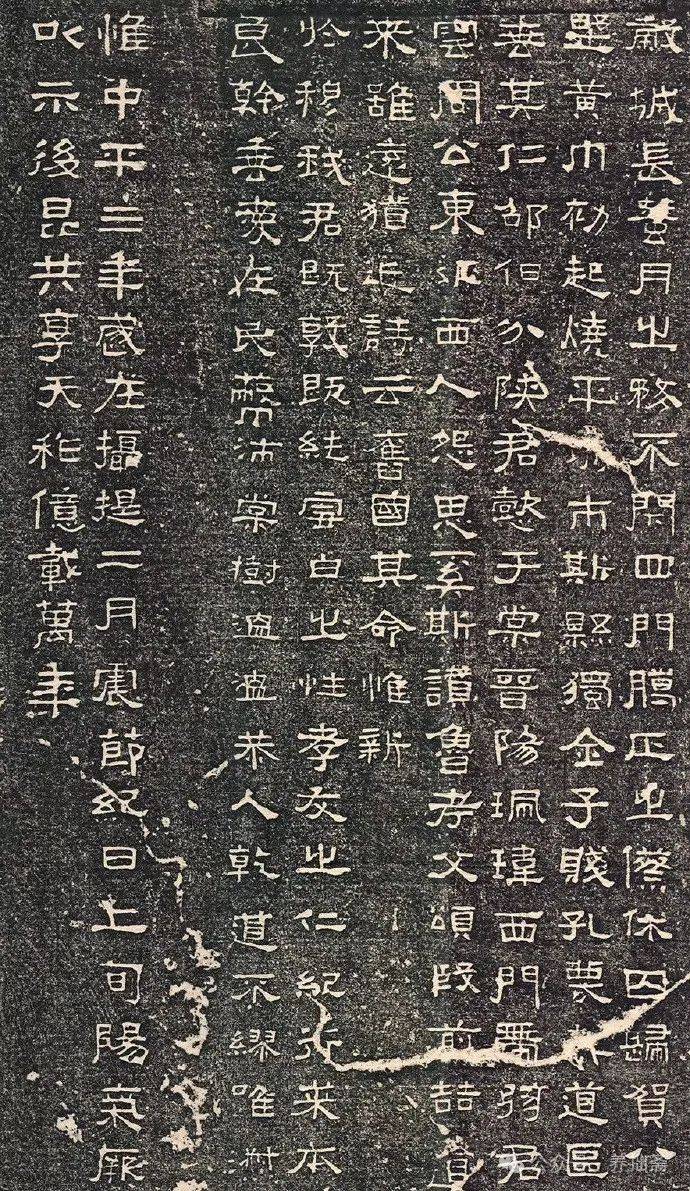 穀城長蠶月之務不閉四門臘正之祭休囚歸賀八
野黃巾初起燒平城市斯縣獨全子賤孔蔑其道區
垂其仁邵伯分陝君懿于棠晉陽珮瑋西門帶弦君
雲周公東征西人怨思奚斯讚魯考父頌殷前喆遺
來雖遠猶近詩云舊國其命惟新
於穆我君既敦既純雪白之性孝友之仁紀行來本
良幹垂愛在民蔽沛棠樹溫溫恭人乾道不繆唯淑
惟中平三年歲在攝提二月震節紀日上旬陽氣厥
以示後昆共享天祚億載萬年
公众号 养拙斋